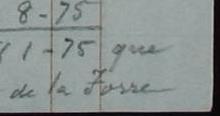 8-75
1-75 que
de la Torre